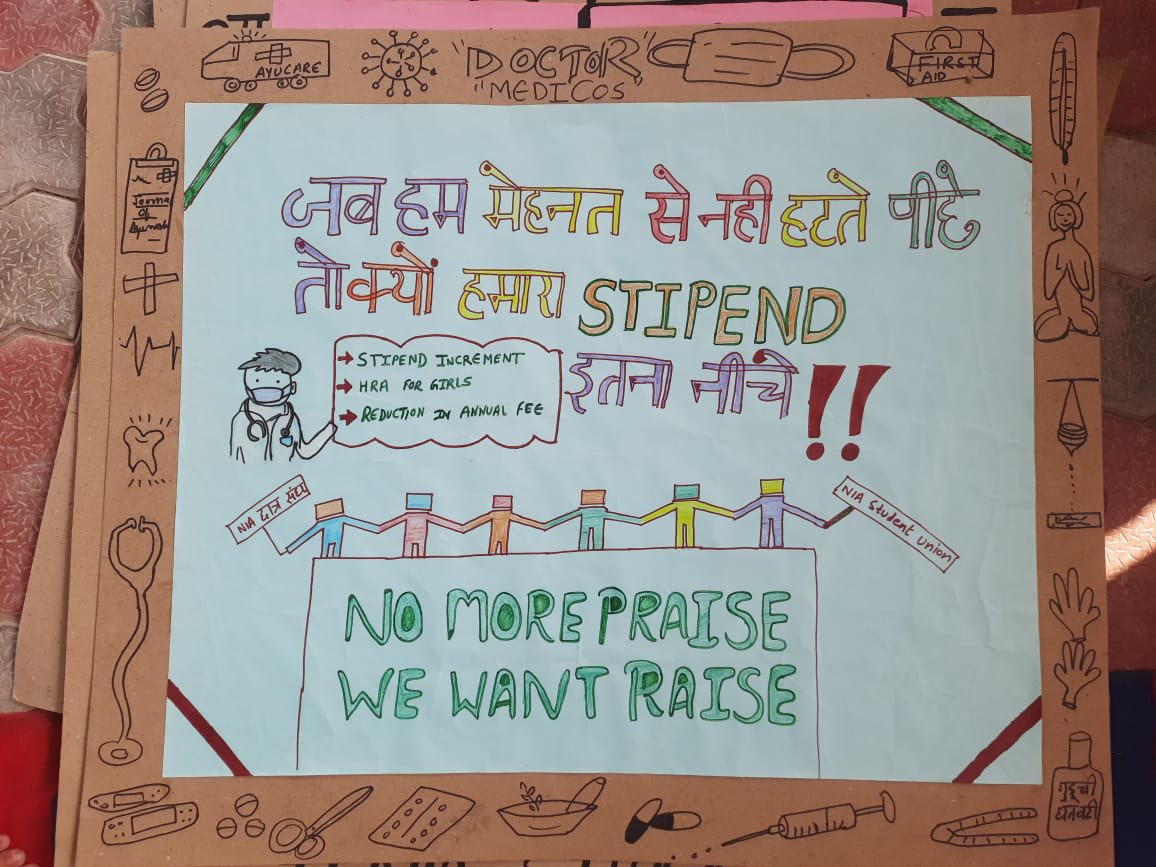 AYUCARE
"DOCTOR"
"MEDICOS
FIRST
AID
Journal
of
Ayurveda
जब हम मेहनत से नही हटते पीछे
तो क्यों हमारा STIPEND
इतना नीचे !!
→ STIPEND INCREMENT
→ HRA FOR GIRLS
→ REDUCTION IN ANNUAL FEE
NIA छात्र संघ
NIA Student Union
NO MORE PRAISE
WE WANT RAISE
गुडूची
घनवटी